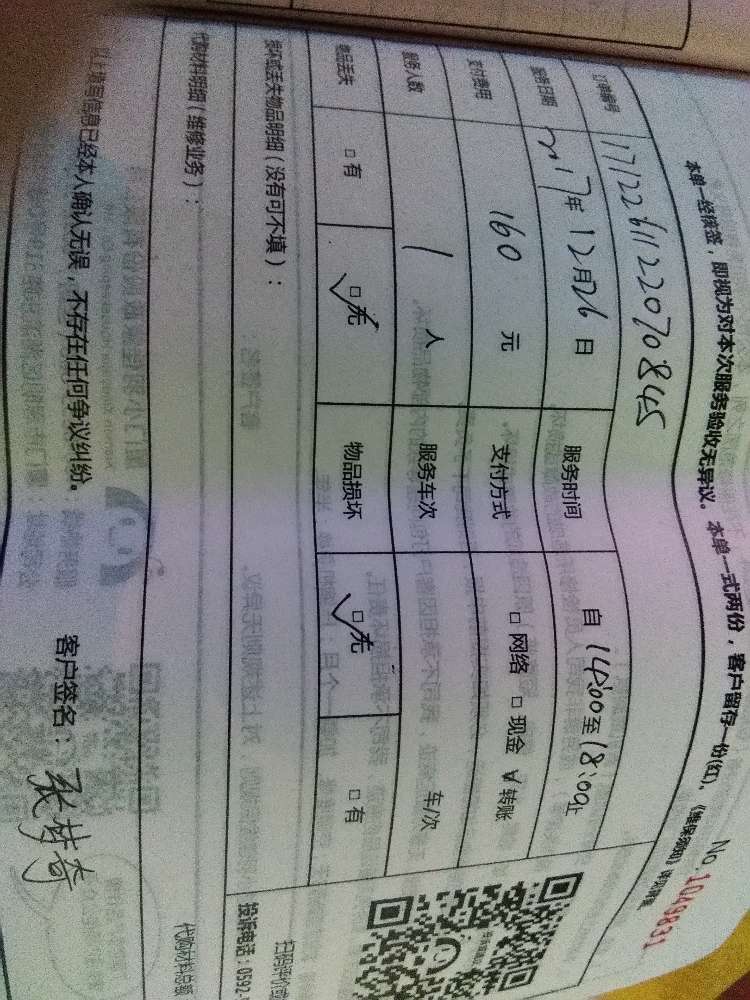 No. 1049831
本单一经续签，即视为对本次服务验收无异议。本单一式两份，客户留存一份(红)。
订单编号 1712261122070845
服务日期 2017年12月26日 服务时间 自14:00至18:00止
支付费用 160元 支付方式 □网络 □现金 ☑转账
服务人数 1人 服务车次 车/次
物品丢失 □有 ☑无 物品损坏 ☑无 □有
损坏或丢失物品明细（没有可不填）：
扫码评价
投诉电话：0592-
代购材料明细（维修业务）：
代购材料总额
以上填写信息已经本人确认无误，不存在任何争议纠纷。
客户签名：张梦奇